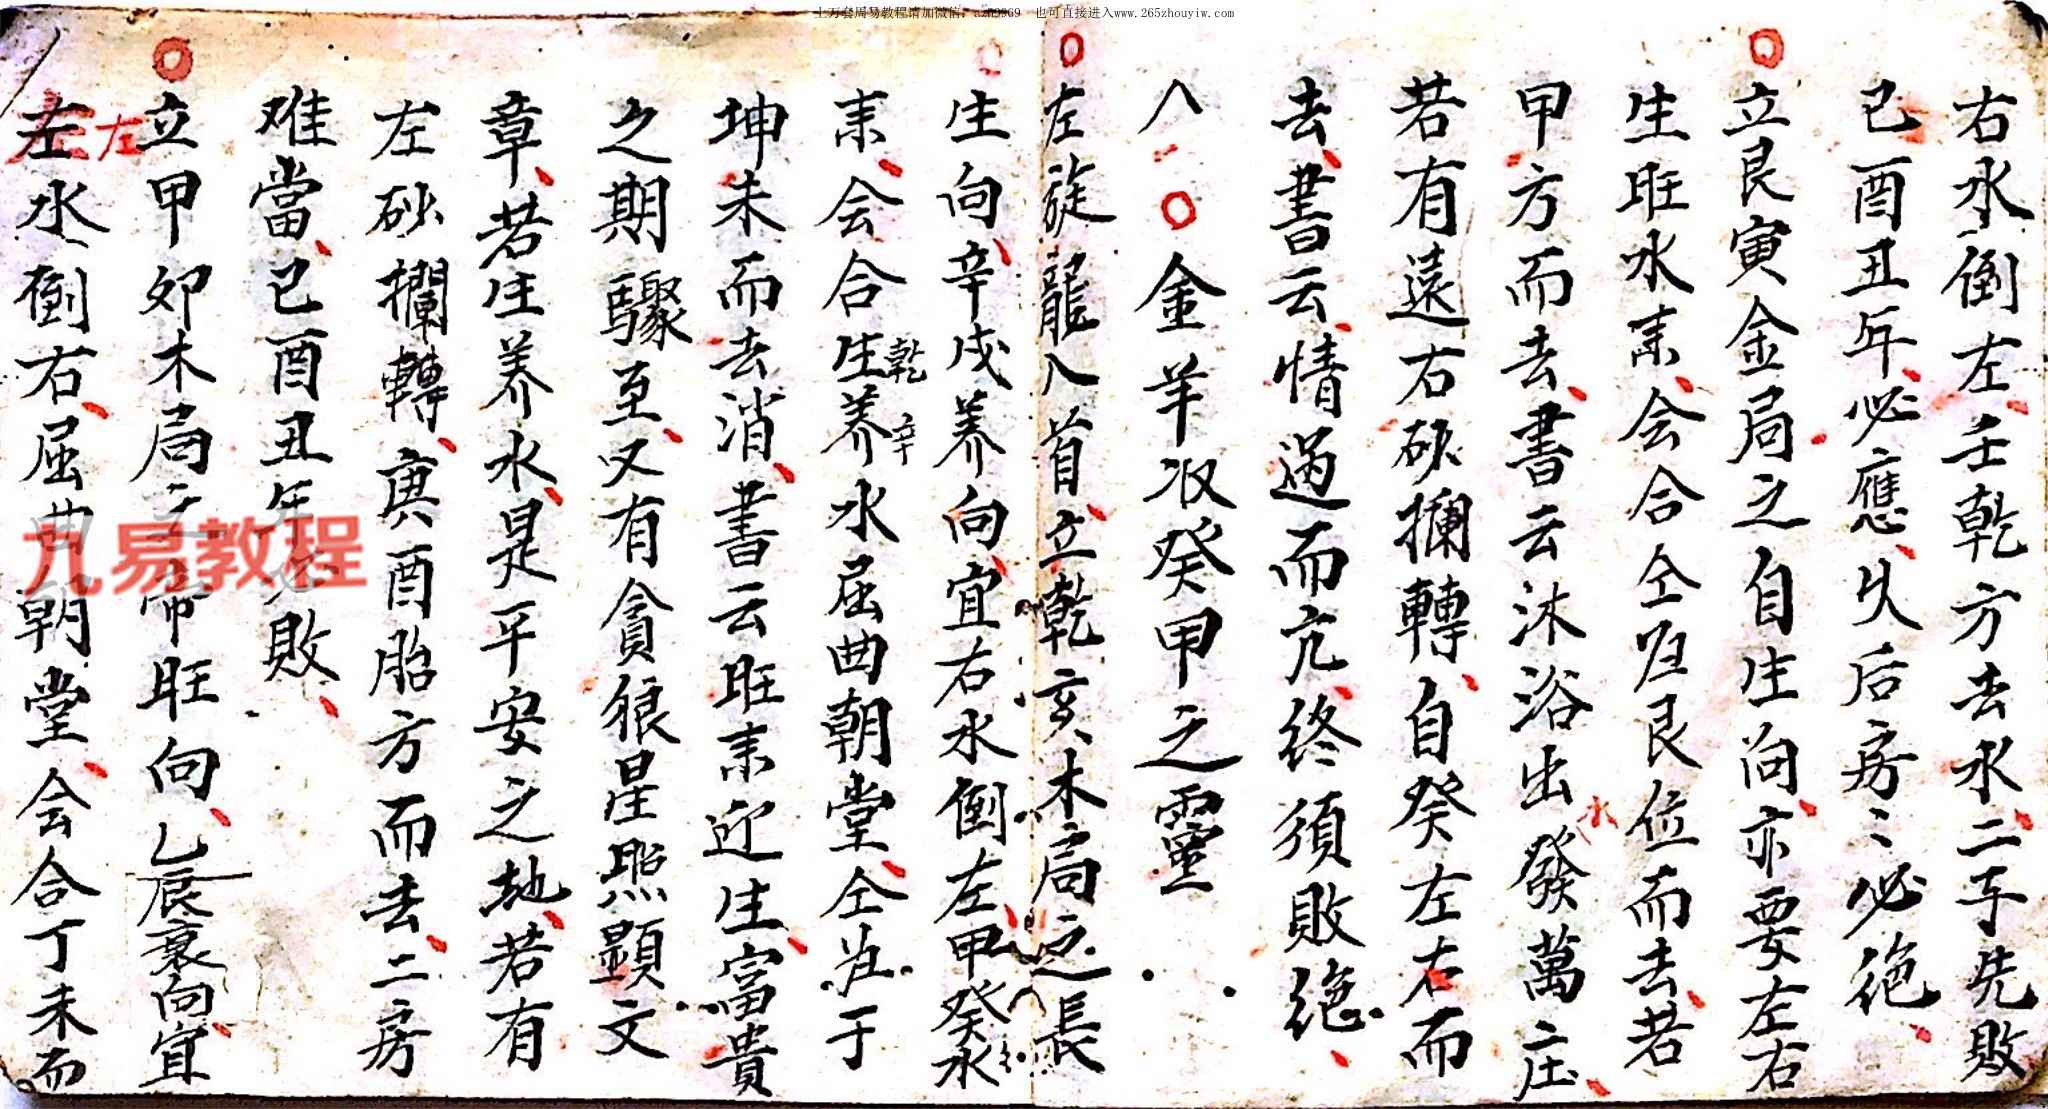 上万套周易教程请加微信：azh9969 也可直接进入www.265zhouyiw.com
右水倒左壬乾方去水二子先敗
己酉丑年必應久后房〻必绝
立艮寅金局之自生向亦要左右
生旺水耒会合仝归艮位而去若
甲方而去書云沐浴出水發萬庄
若有遠右砂攔轉自癸左右而
去書云情過而亢终須敗绝
八 金羊収癸甲之靈
左旋龍入首立乾亥木局之長
生向辛戌养向宜右水倒左甲癸水
耒会合生养乾辛水屈曲朝堂仝归于
坤未而去消書云旺耒迎生富貴
之期驟至又有貪狼星照顯文
章若生养水是平安之地若有
左砂攔轉庚酉胎方而去二房
难當己酉丑年必敗
立甲卯木局之帝旺向乙辰衰向宜
左水倒右屈曲朝堂会合丁未而
左
九易教程